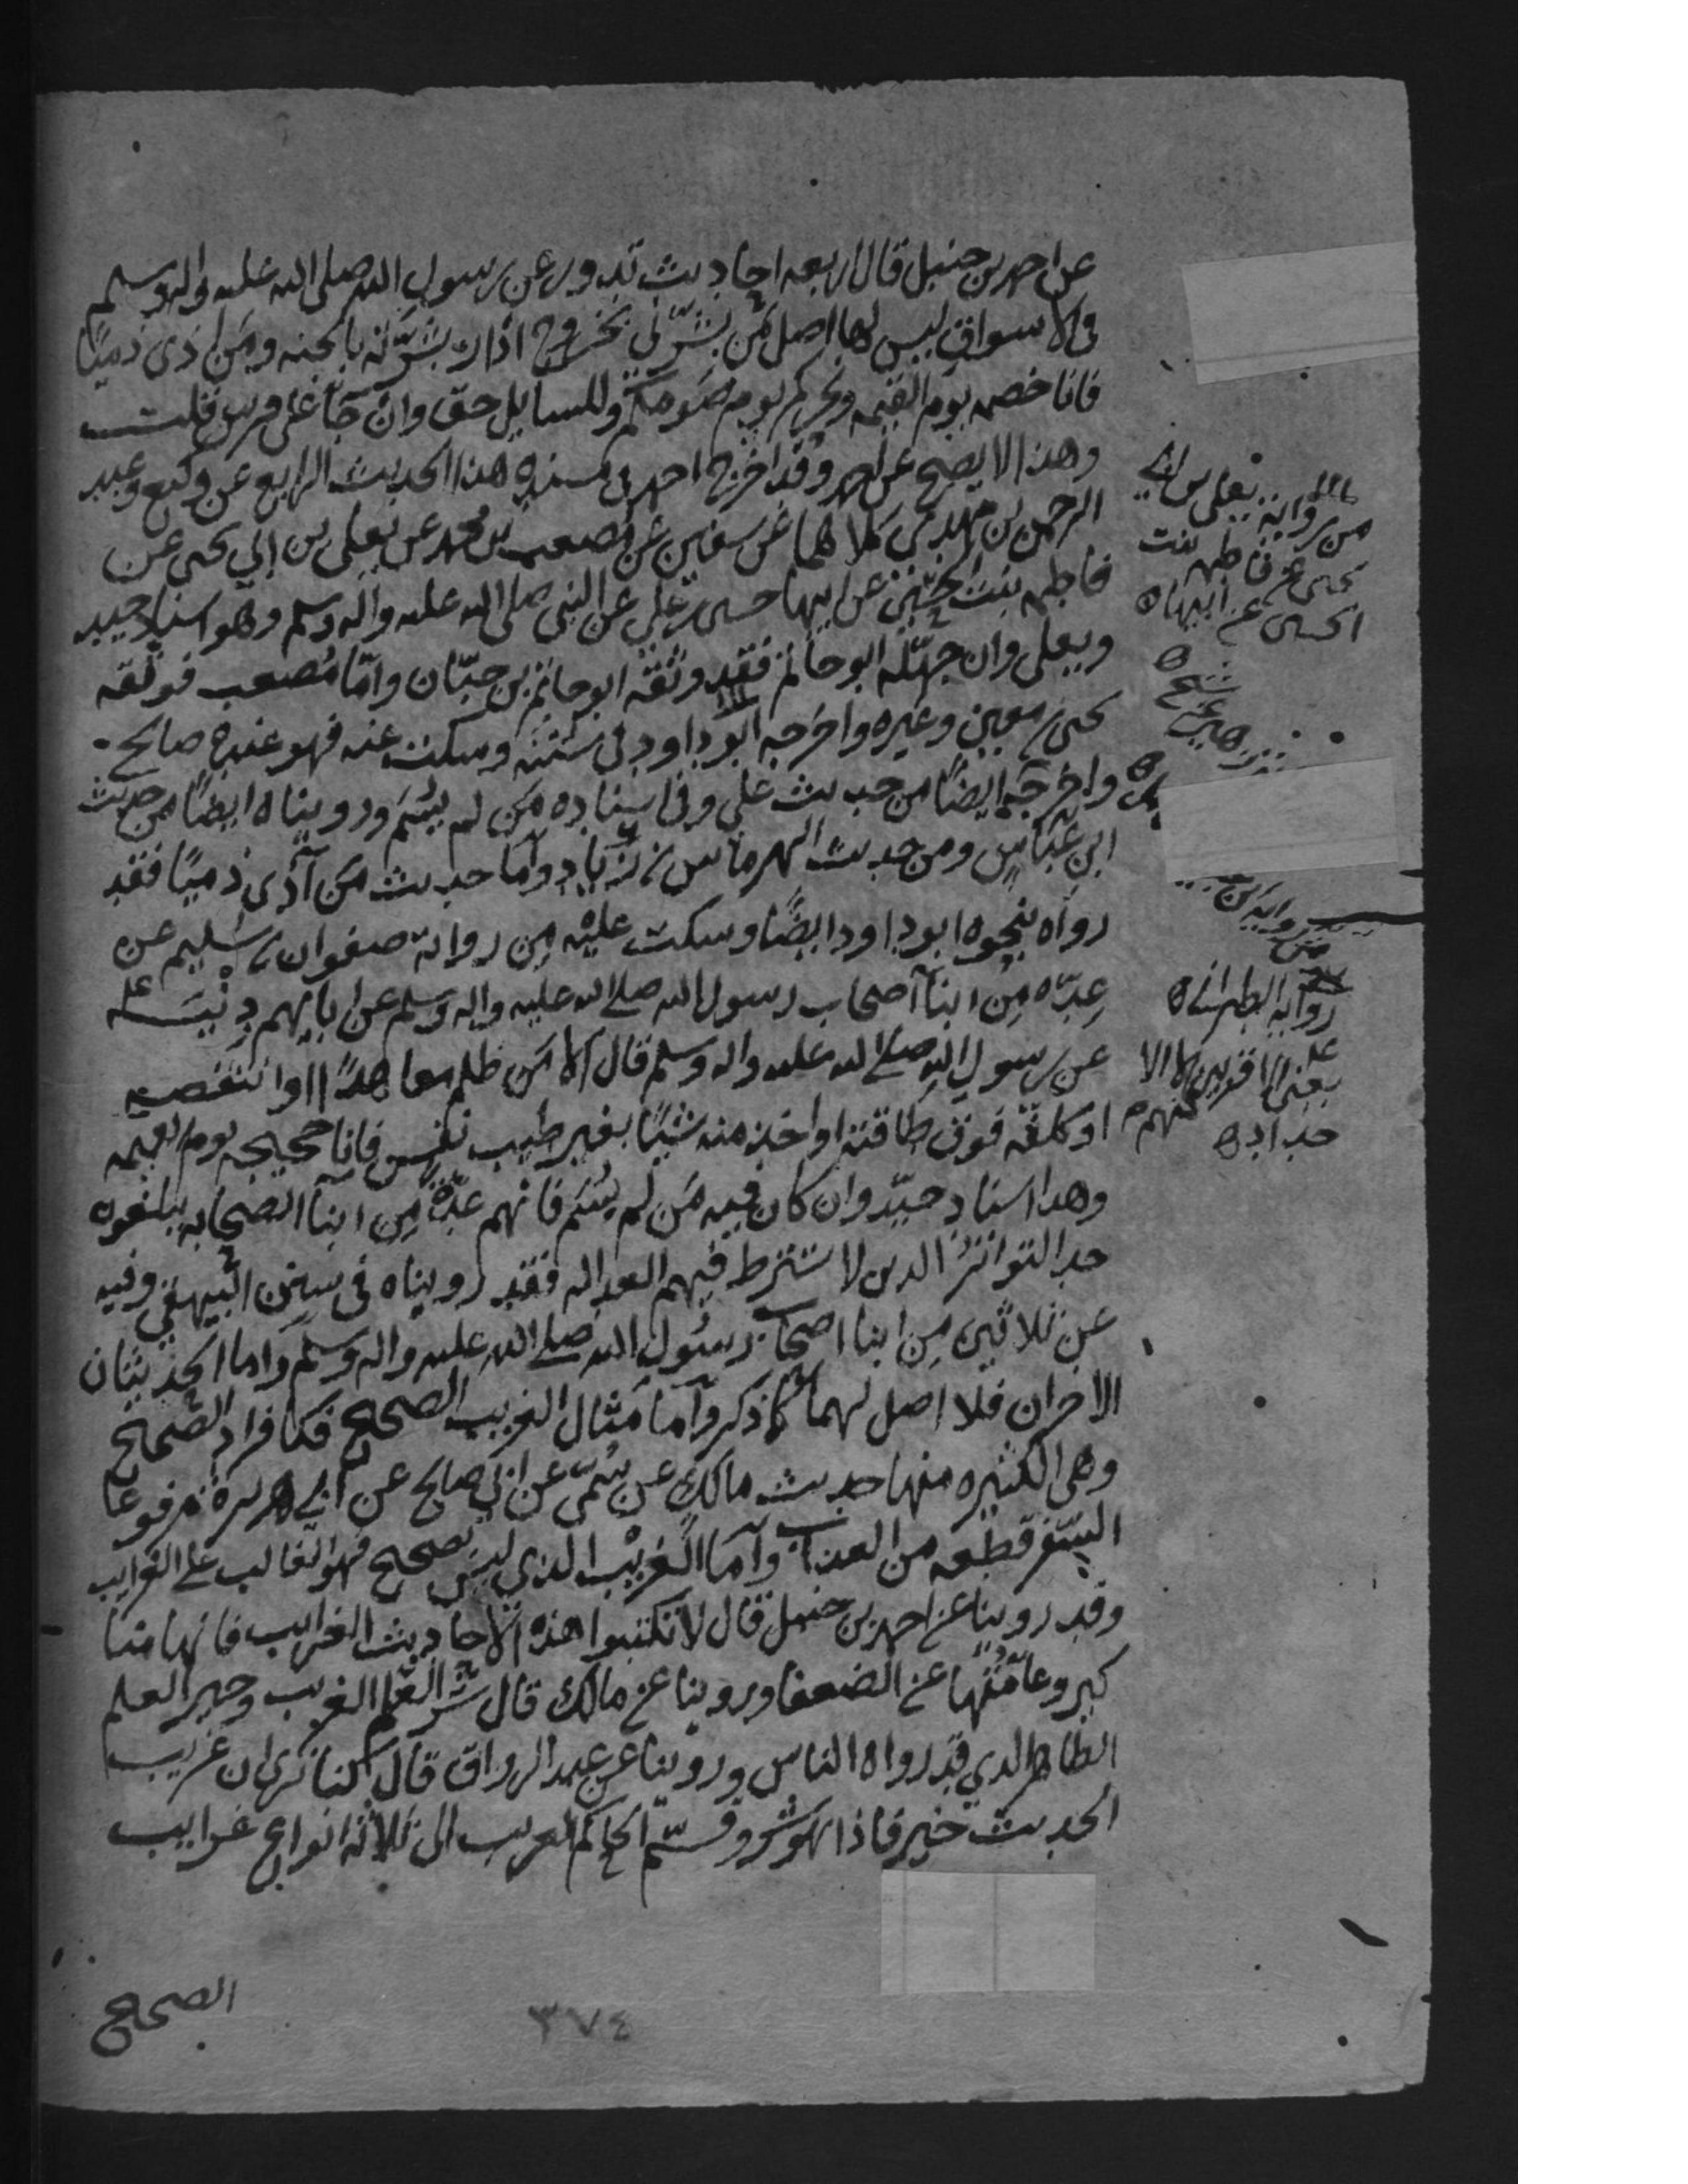 عن احمد بن حنبل قال اربعه احاديث تدور عن رسول الله صلى الله عليه واله وسلم
في الاسواق ليس لها اصل من بشرني بخروج اذار بشرته بالجنه ومن اذى ذميًا
فانا خصمه يوم القيمه ونحركم يوم صومكم وللسايل حق وان جآ على فرس قلت
وهذا لا يصح عن احمد وقد اخرج احمد في مسنده هذا الحديث الرابع عن وكيع وعبد
الرحمن بن مهدي كلاهما عن سفين عن مصعب بن محمد عن يعلى بن ابي يحيى عن
فاطمه بنت الحسين عن ابيها حسين بن علي عن النبي صلى الله عليه واله وسلم وهو اسناد جيد
ويعلى وان جهّله ابو حاتم فقد وثقه ابو حاتم بن حبّان وامّا مصعب فوثقه
يحيى بن معين وغيره واخرجه ابو داود في سننه وسكت عنه فهو عنده صالح
واخرجه ايضًا من حديث علي وفي اسناده من لم يسم ورويناه ايضًا من حديث
ابن عباس ومن حديث الهرماس بن زياد وأما حديث من آذى ذميًا فقد
رواه بنحوه ابو داود ايضًا وسكت عليه من رواية صفوان بن سليم عن
عِدّه مِن ابنآ اصحاب رسول الله صلى الله عليه واله وسلم عن ابايهم دِنْيَة
عن رسول الله صلى الله عليه واله وسلم قال الا من ظلم معاهدًا او انتقصه
او كلفه فوق طاقته او اخذ منه شيئًا بغير طيب نفس فانا حجيجه يوم القيمه
وهذا اسناد جيّد وان كان فيه من لم يسم فانهم عدّة مِن ابنآ الصحابه يبلغون
حد التواتر الذين لا تشترط فيهم العداله فقد رويناه في سنن البيهقي وفيه
عن ثلاثين مِن ابنا اصحاب رسول الله صلى الله عليه واله وسلم واما الحديثان
الاخران فلا اصل لهما كما ذكر وأما مثال الغريب الصحيح فكافراد الصحيح
وهي الكثيره منها حديث مالك عن سُمَيّ عن ابي صالح عن ابي هريرة مرفوعًا
السّفر قطعه من العذاب وأما الغريب الذي ليس بصحيح فهو الغالب على الغرايب
وقد روينا عن احمد بن حنبل قال لا تكتبوا هذه الاحاديث الغرايب فانها منا
كير وعامّتُها عن الضعفا وروينا عن مالك قال شر العلم الغريب وخير العلم
الظاهر الذي قد رواه الناس وروينا عن عبد الرزاق قال كنا نرى ان غريب
الحديث خير فاذا هو شر وقسّم الحاكم الغريب الى ثلاثه انواع غرايب
الصحيح
٣٧٤
من رواية يعلى بن ابي
يحيى عن فاطمه بنت
الحسين عن ابيها
زهير عن شيخ
من رواية ابن
رواية الطبراني
يعني الاقربين